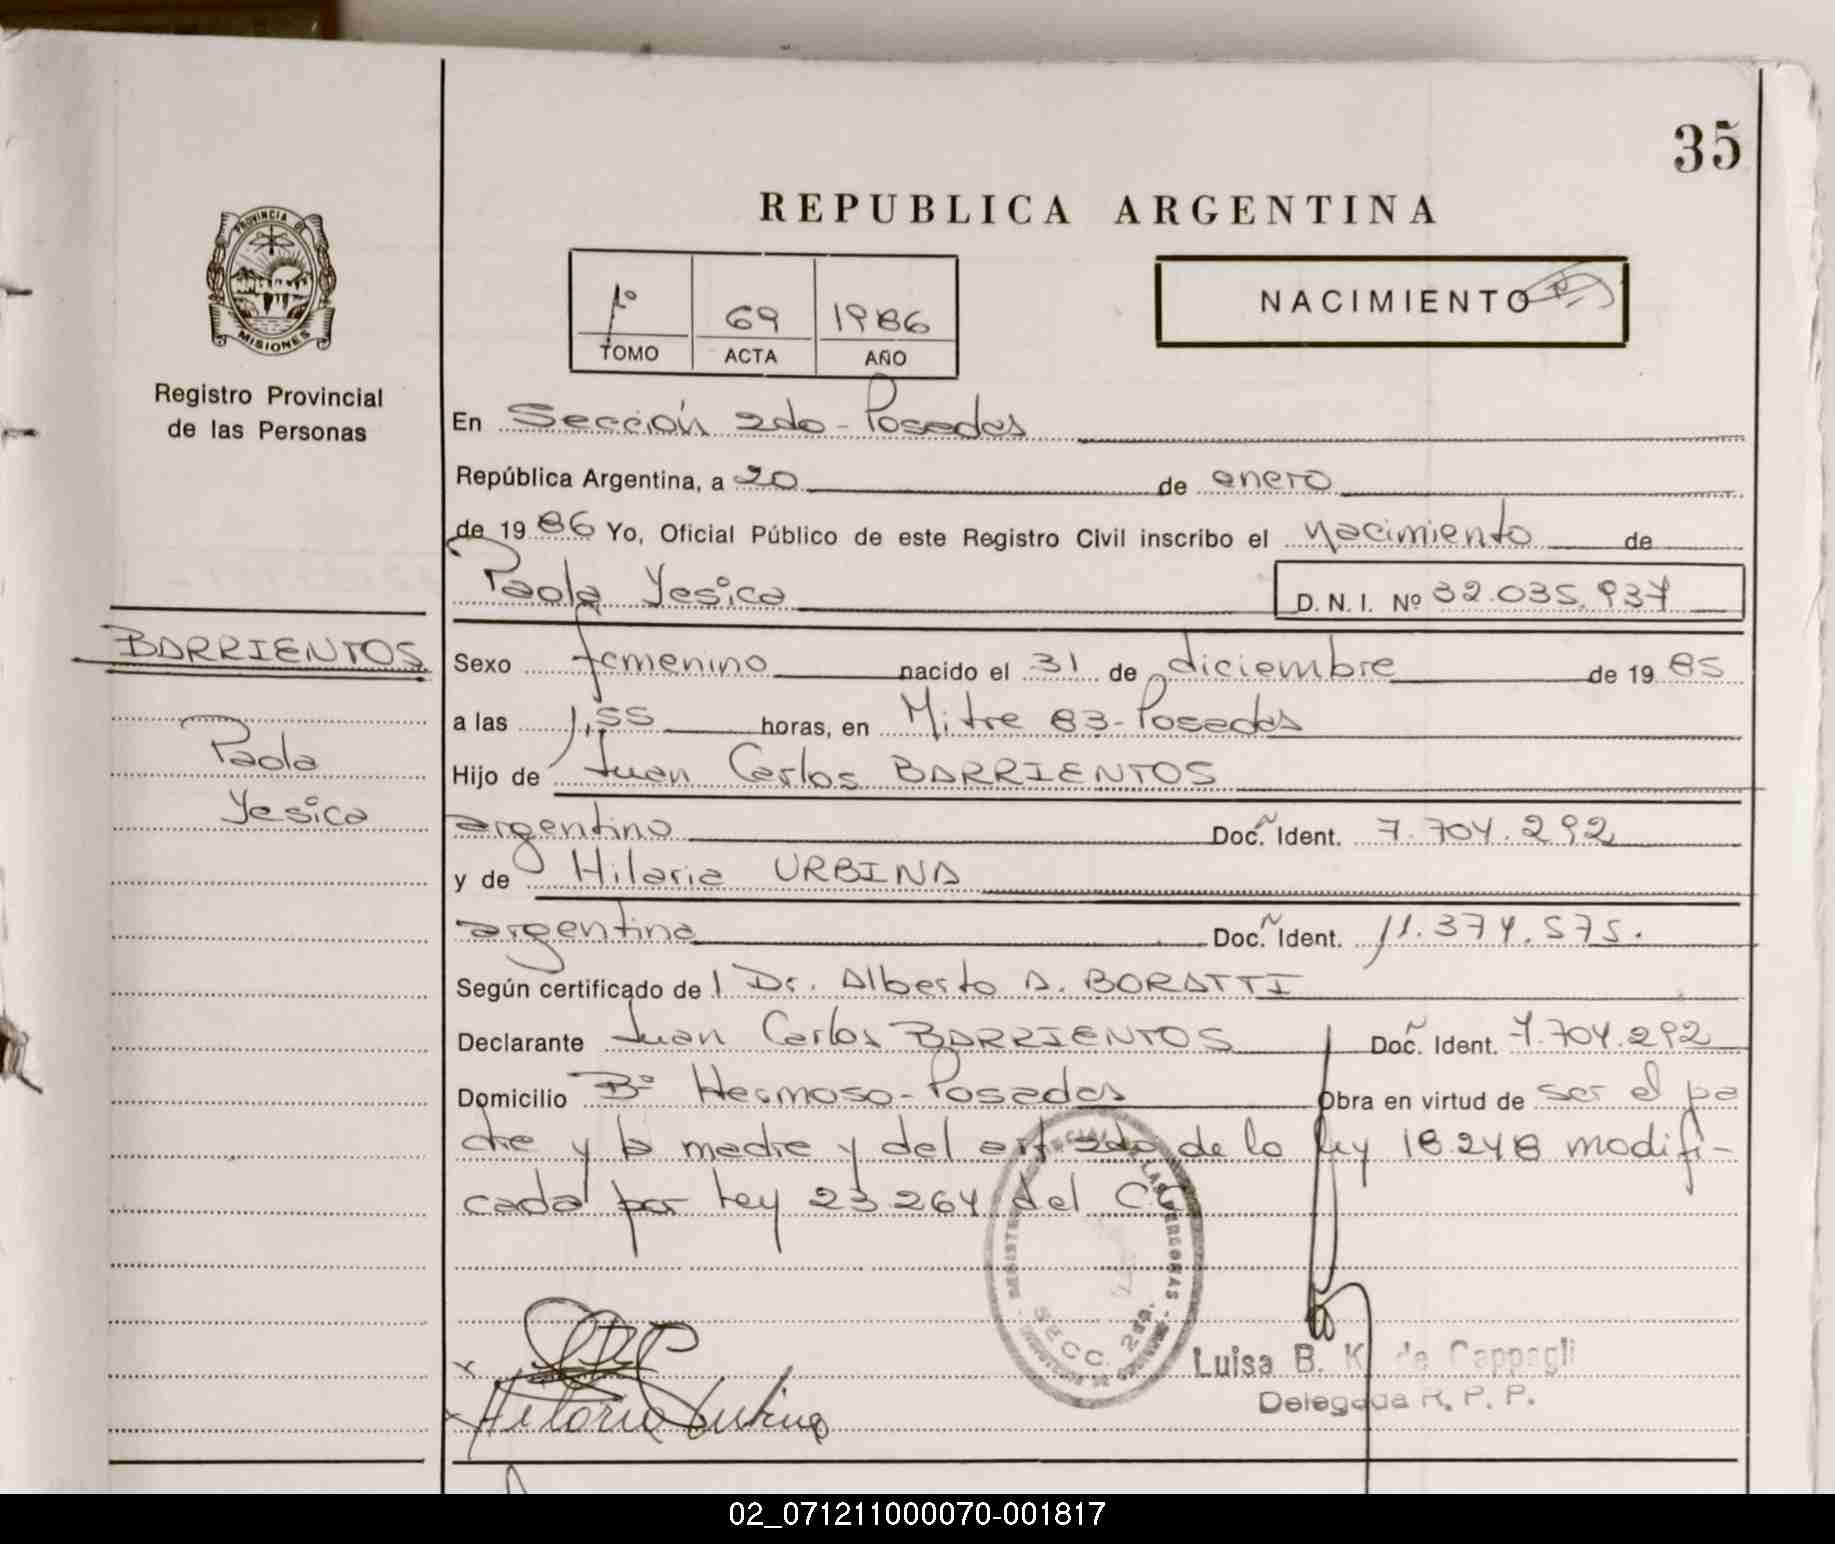 35
REPUBLICA ARGENTINA
PROVINCIA DE
MISIONES
Registro Provincial
de las Personas
1º 69 1986
TOMO ACTA AÑO
NACIMIENTO
En Sección 2da - Posadas
República Argentina, a 20 de enero
de 1986 Yo, Oficial Público de este Registro Civil inscribo el nacimiento de
Paola Yesica D. N. I. Nº 32.035.937
BARRIENTOS
Paola
Yesica
Sexo femenino nacido el 31 de diciembre de 1985
a las 1,55 horas, en Mitre 83 - Posadas
Hijo de Juan Carlos BARRIENTOS
argentino Doc. Ident. 7.704.292
y de Hilaria URBINA
argentina Doc. Ident. 11.374.575.
Según certificado del Dr. Alberto A. BORATTI
Declarante Juan Carlos BARRIENTOS Doc. Ident. 7.704.292
Domicilio Bº Hermoso - Posadas Obra en virtud de ser el pa
dre y la madre y del art 2do de la ley 18.248 modifi-
cada por Ley 23.264 del C.C.
LAS PERSONAS
SECC. 2da.
Hilaria Urbina
Luisa B. K. de Cappagli
Delegada R. P. P.
02_071211000070-001817